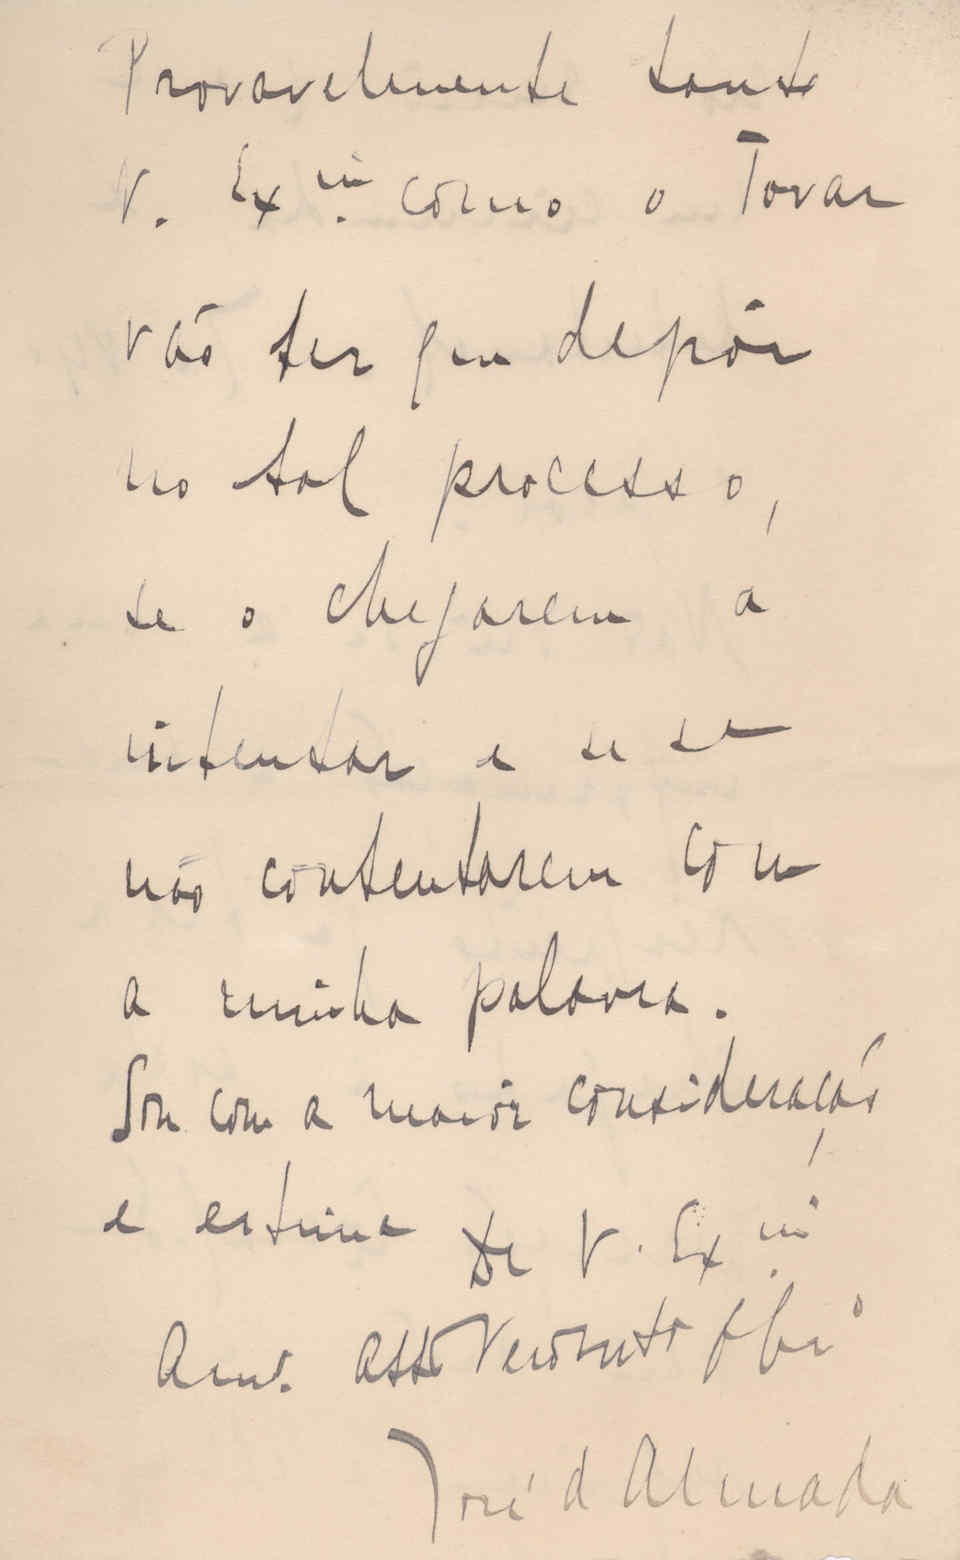 Provavelmente tanto
V. Exᵃ. como o Tovar
vão ter que depôr
no tal processo,
se o chegarem a
intentar e se se
não contentarem com
a minha palavra.
Sou com a maior consideração
e estima De V. Exᵃ.
Amº. Attº Venor muito
José d Almada